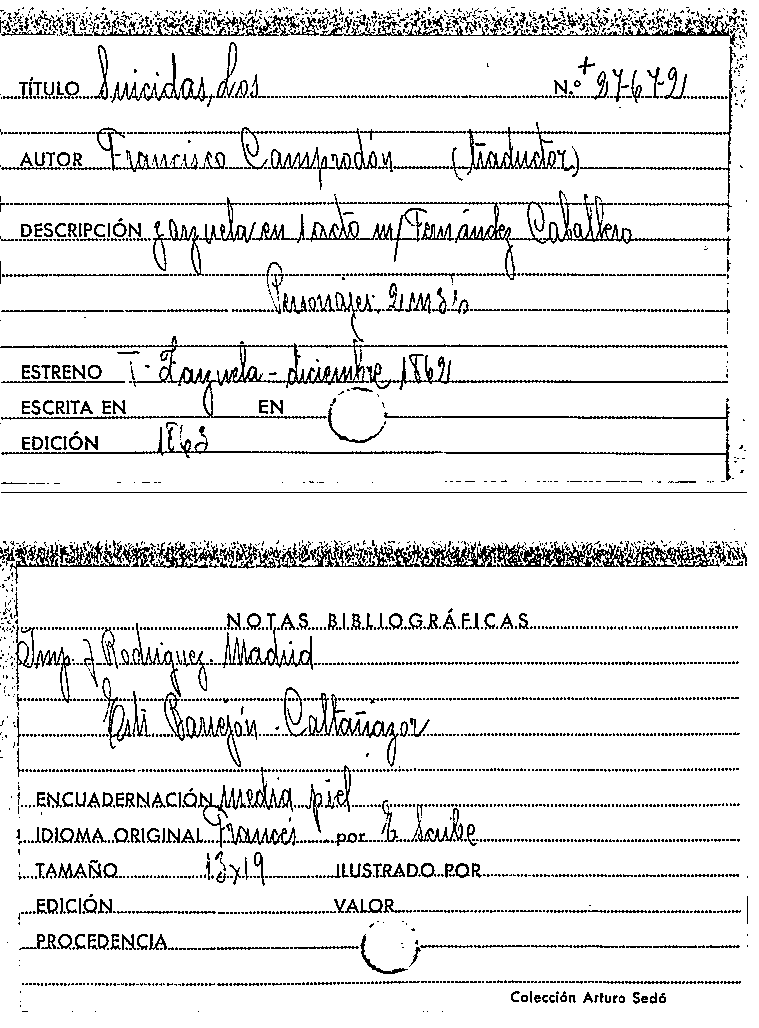 TÍTULO Suicidas, Los N.º + 27-6-72
AUTOR Francisco Camprodón (traductor)
DESCRIPCIÓN zarzuela en 1 acto m/ Fernández Caballero
Personajes: 2 m 3 h
ESTRENO T. Zarzuela - diciembre 1862
ESCRITA EN EN
EDICIÓN 1863
NOTAS BIBLIOGRÁFICAS
Imp. J Rodriguez. Madrid
Barrejón - Caltañazor
ENCUADERNACIÓN media piel
IDIOMA ORIGINAL Francés por E Scribe
TAMAÑO 13x19 ILUSTRADO POR
EDICIÓN VALOR
PROCEDENCIA
Colección Arturo Sedó